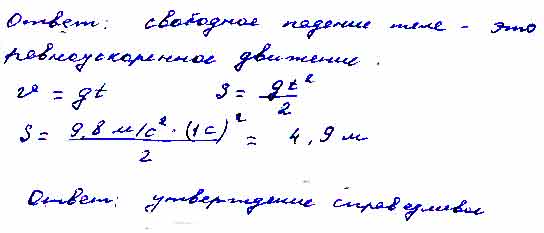 Ответ: свободное падение тела - это
равноускоренное движение.
v = gt     S = gt²/2
S = 9,8 м/с² · (1с)²/2 = 4,9 м
Ответ: утверждение справедливо